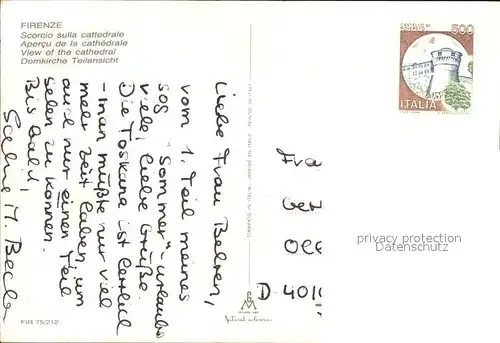 FIRENZE
Scorcio sulla cattedrale
Aperçu de la cathédrale
View of the cathedral
Domkirche Teilansicht
CASTELLO DI
ROVERETO
500
ITALIA
Liebe Frau Behren,
vom 1. Teil meines
sog "Sommer"-urlaubs
viele, liebe Grüße.
Die Toskana ist herrlich
- man müßte nur viel
mehr Zeit haben, um
auch nur einen Teil
sehen zu können.
Bis bald,
Sabine M.
Fra
Ger
OCC
D-401
privacy protection
Datenschutz
FIR 75/212